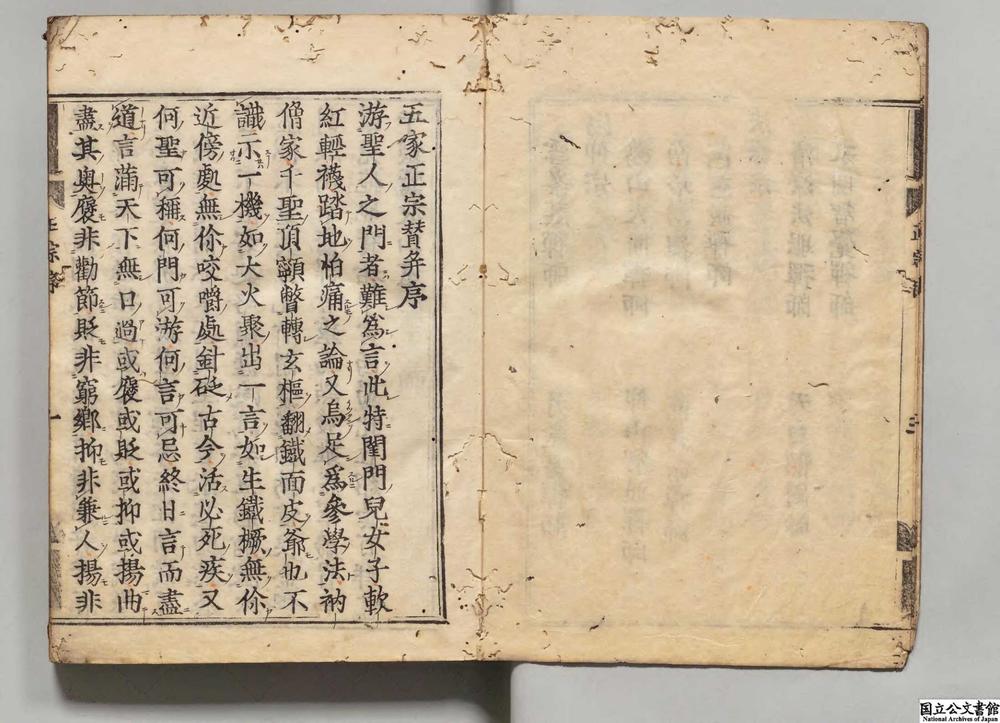 五家正宗賛并序
游聖人之門者難爲言此特閨門兒女子軟
紅輕襪踏地怕痛之論又烏足爲參學法衲
僧家千聖頂𩕳瞥轉玄樞翻鐵面皮爺也不
識示一機如大火聚出一言如生鐵橛無你
近傍處無你咬嚼處針砭古今活必死疾又
何聖可稱何門可游何言可忌終日言而盡
道言滿天下無口過或褒或貶或抑或揚曲
盡其奧褒非勸節貶非窮鄉抑非兼人揚非
正宗
一
国立公文書館
National Archives of Japan